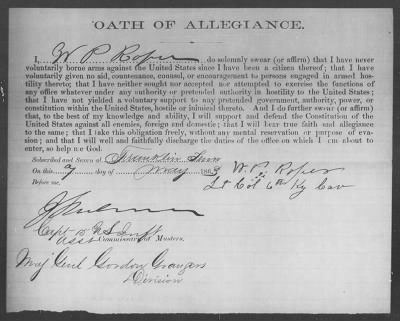 OATH OF ALLEGIANCE.
I, W P Roper do solemnly swear (or affirm) that I have never
voluntarily borne arms against the United States since I have been a citizen thereof; that I have
voluntarily given no aid, countenance, counsel, or encouragement to persons engaged in armed hos-
tility thereto; that I have neither sought nor accepted nor attempted to exercise the functions of
any office whatever under any authority or pretended authority in hostility to the United States;
that I have not yielded a voluntary support to any pretended government, authority, power, or
constitution within the United States, hostile or inimical thereto. And I do further swear (or affirm)
that, to the best of my knowledge and ability, I will support and defend the Constitution of the
United States against all enemies, foreign and domestic; that I will bear true faith and allegiance
to the same; that I take this obligation freely, without any mental reservation or purpose of eva-
sion; and that I will well and faithfully discharge the duties of the office on which I am about to
enter, so help me God.
Subscribed and Sworn at Franklin Tenn
On this 7 day of May 1863
Before me,
W. P. Roper
Lt Col 6th Ky Cav
Capt U S Inft
Asst Commissary of Musters.
Maj Genl Gordon Grangers
Division